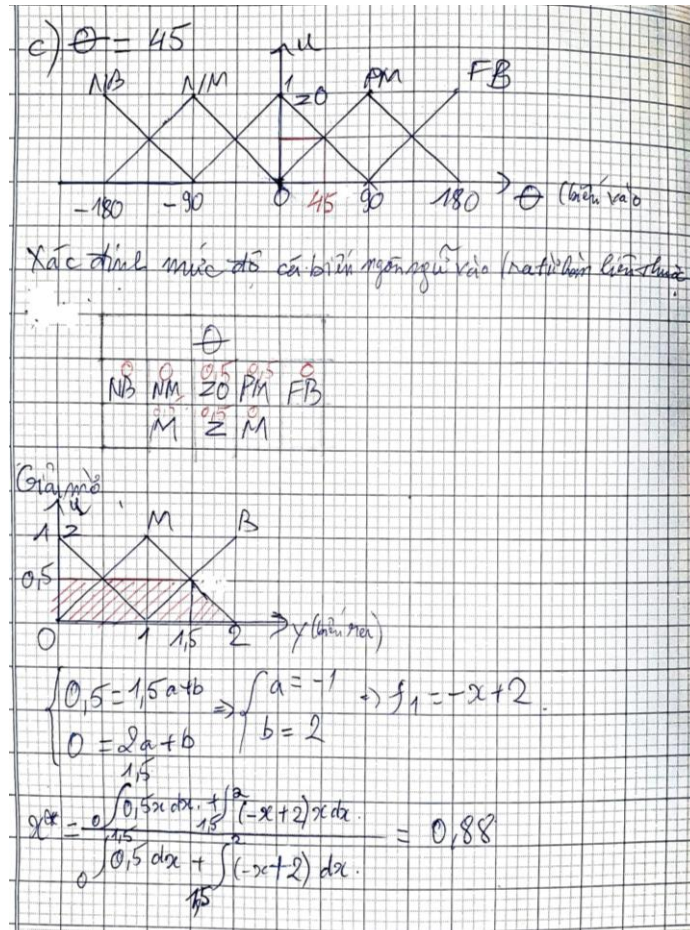 c) θ = 45
u
NB NM 1 ZO PM FB
-180 -90 0 45 90 180 θ (biến vào
Xác định mức độ của biến ngôn ngữ vào
θ
0 0 0,5 0,5 0
NB NM ZO PM FB
0,5 0,5 0
M Z M
Giải mờ
u
1 Z M B
0,5
0 1 1,5 2 y (biến ra)
{ 0,5 = 1,5a+b => { a = -1 => f1 = -x+2.
0 = 2a+b b = 2
x* = ( 0∫1,5 0,5x dx. + 1,5∫2 (-x+2)x dx. ) / ( 0∫1,5 0,5 dx + 1,5∫2 (-x+2) dx. ) = 0,88